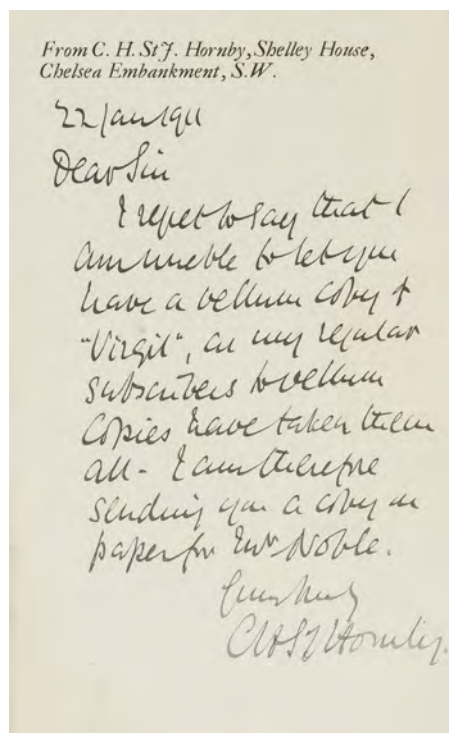 From C. H. St J. Hornby, Shelley House,
Chelsea Embankment, S.W.
22 Jan 1911
Dear Sir
I regret to say that I
am unable to let you
have a vellum copy of
"Virgil", as my regular
subscribers to vellum
copies have taken them
all - I am therefore
sending you a copy on
paper for Mr. Noble.
Yours truly
C H St J Hornby.